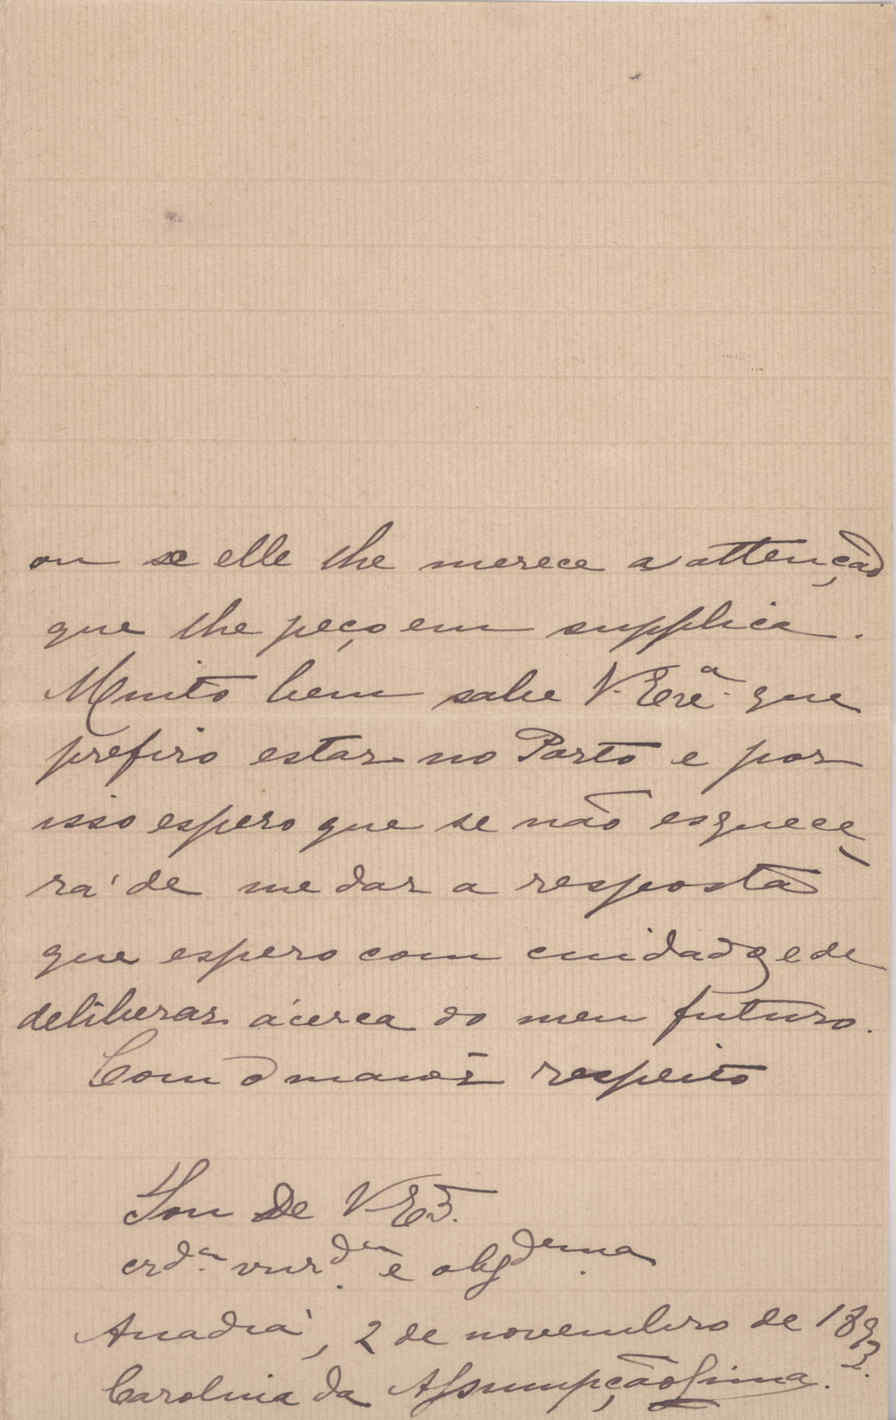 ou se elle lhe merece a attenção
que lhe peço em supplica.
Muito bem sabe V. Exª. que
prefiro estar no Porto e por
isso espero que se não esquece-
rá de me dar a resposta
que espero com cuidado e de
deliberar ácerca do meu futuro.
Com o maior respeito
Sou De V. Ex.
crdª. vnrdª. e obgdma
Anadia, 2 de novembro de 1893.
Carolina da Assumpção Lima.